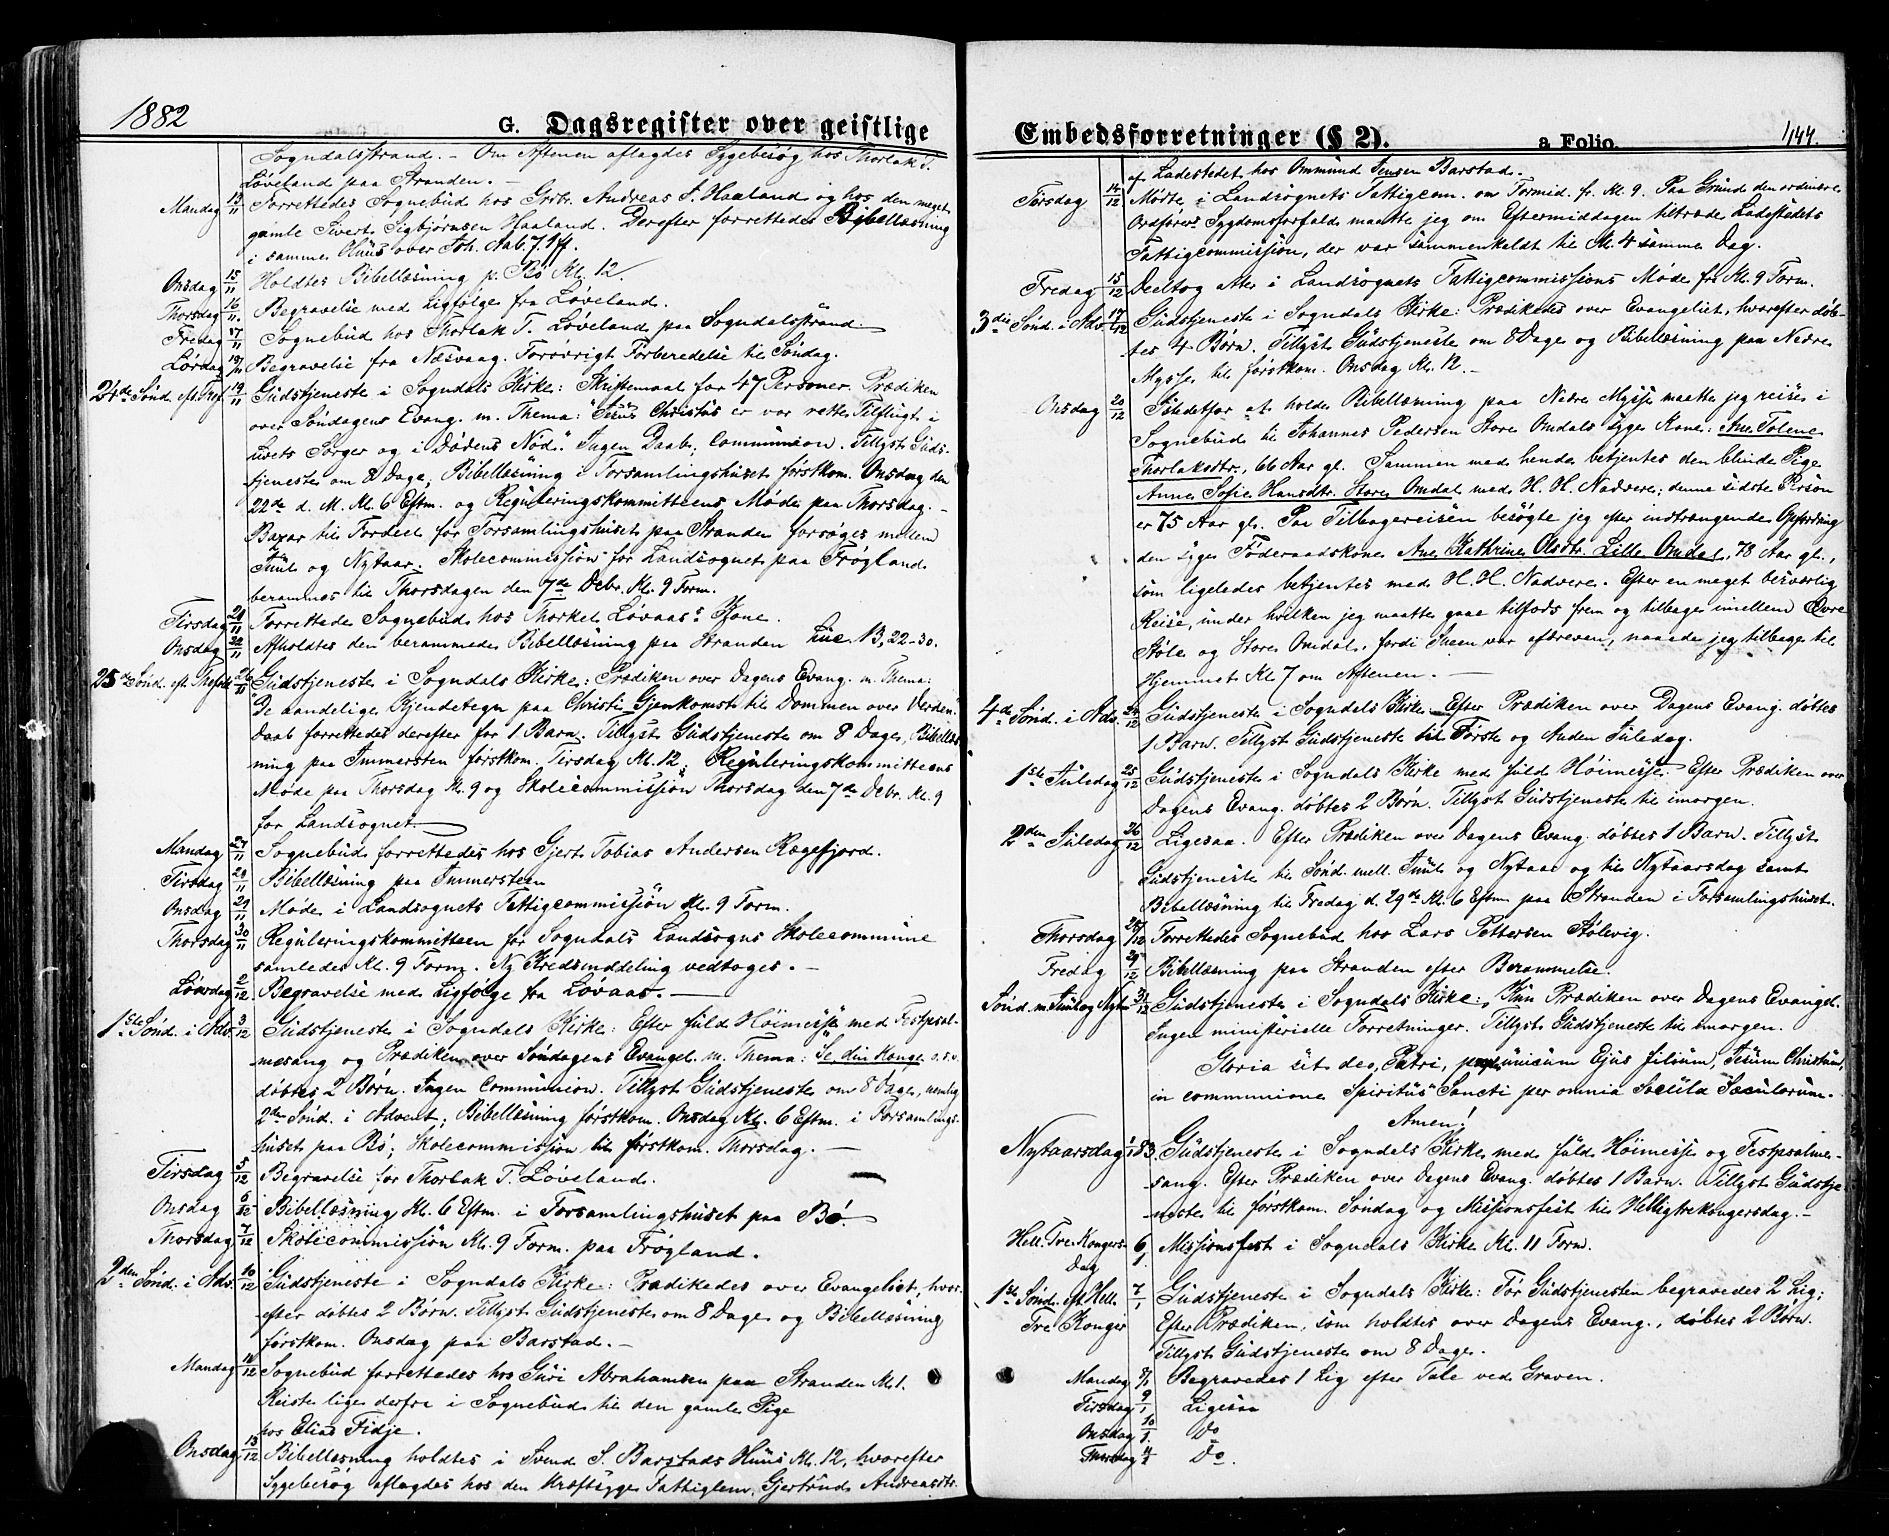 1882
G. Dagsregister over geistlige
Sogndalsstrand. – Om Aftenen aflagdes Sygebesøg hos Thorlak T.
Løveland paa Stranden. –
Mandag 13/11 Forrettedes Sognebud hos Grbr. Andreas S. Haaland og hos den meget
gamle Sivert Sigbjørnsen Haaland. Derefter forrettedes Bibellæsning
i samme Huus over Joh. Aab. 7. 1 ff.
Onsdag 15/11 Holdtes Bibellæsning p. Bø Kl. 12.
Thorsdag 16/11 Begravelse med Ligfølge fra Løveland.
Fredag 17/11 Sognebud hos Thorlak T. Løveland paa Sogndalsstrand.
Lørdag Begravelse fra Næsvaag. Forøvrigt Forberedelse til Søndag.
24de Sønd. eft. Tref. 19/11 Gudstjeneste i Sogndals Kirke: Skriftemaal for 47 Personer. Prædiken
over Søndagens Evang. m. Thema: "Jesus Christus er vor rette Tilflugt i
Livets Sorger og i Dødens Nød". Ingen Daab. Communion. Tillyst Guds-
tjeneste om 8 Dage, Bibellæsning i Forsamlingshuset førstkom. Onsdag den
22de d. M. Kl. 6 Eftm. og Reguleringskommitteens Møde paa Thorsdag. –
Bazar til Fordeel for Forsamlingshuset paa Stranden forsøges mellem
Juul og Nytaar. Skolecommission for Landsognet paa Frøgland
berammes til Thorsdagen den 7de Debr. Kl. 9 Form.
Tirsdag 21/11 Forrettedes Sognebud hos Thorkel Løvaas's Kone.
Onsdag 22/11 Afholdtes den berammede Bibellæsning paa Stranden Luc. 13, 22-30.
25de Sønd. eft. Trefold. 26/11 Gudstjeneste i Sogndals Kirke: Prædiken over Dagens Evang. m. Thema:
"De aandelige Kjendetegn paa Christi Gjenkomst til Dommen over Verden."
Daab forrettedes derefter for 1 Barn. Tillyst Gudstjeneste om 8 Dage, Bibellæs-
ning paa Immersten førstkom. Tirsdag Kl. 12; Reguleringskommitteens
Møde paa Thorsdag Kl. 9 og Skolecommission Thorsdag den 7de Debr. Kl. 9
for Landsognet.
Mandag 27/11 Sognebud forrettedes hos Gjert Tobias Andersen Rægefjord.
Tirsdag 28/11 Bibellæsning paa Immersteen
Onsdag 29/11 Møde i Landsognets Fattigcommission Kl. 9 Form.
Thorsdag 30/11 Reguleringskommitteen for Sogndals Landsogns Skolecommune
samledes Kl. 9 Form. Ny Kredsinddeling vedtoges. –
Løverdag 2/12 Begravelse med Ligfølge fra Lovaas. –
1ste Sønd. i Adv. 3/12 Gudstjeneste i Sogndals Kirke: Efter fuld Høimesse med Festpsal-
mesang og Prædiken over Søndagens Evangel. m. Thema: Se din Konge o.s.v.
døbtes 2 Børn. Ingen Communion. Tillyst Gudstjeneste om 8 Dage, nemlig
2den Sønd. i Advent; Bibellæsning førstkom. Onsdag Kl. 6 Eftm. i Forsamlings-
huset paa Bø; Skolecommission til førstkom. Thorsdag. –
Tirsdag 5/12 Begravelse for Thorlak T. Løveland.
Onsdag 6/12 Bibellæsning Kl. 6 Eftm. i Forsamlingshuset paa Bø.
Thorsdag 7/12 Skolecommission Kl. 9 Form. paa Frøgland.
2den Sønd. i Adv. 10/12 Gudstjeneste i Sogndals Kirke: Prædikedes over Evangeliet, hvor-
efter døbtes 2 Børn. Tillyst Gudstjeneste om 8 Dage og Bibellæsning
førstkom. Onsdag paa Barstad. –
Mandag 11/12 Sognebud forrettedes hos Guri Abrahamsen paa Stranden Kl. 1.
Reiste lige derfra i Sognebud til den gamle Pige
hos Elias Fidje.
Onsdag 13/12 Bibellæsning holdtes i Svend S. Barstads Huus Kl. 12, hvorefter
Sygebesøg aflagdes hos den kræftsyge Fattiglem, Gjertrud Andreasdtr.
Embedsforretninger (§ 2). a Folio. 144.
af Ladestedet hos Ommund Jensen Barstad.
Torsdag 14/12 Mødte i Landsognets Fattigcom. om Formid. fr. Kl. 9. Paa Grund den ordinære
Ordførers Sygdomsforfald maatte jeg om Eftermiddagen tiltræde Ladestedets
Fattigcommission, der var sammenkaldt til Kl. 4 samme Dag.
Fredag 15/12 Deeltog atter i Landsognets Fattigcommissions Møde fr. Kl. 9 Form.
3die Sønd. i Adv. 17/12 Gudstjeneste i Sogndals Kirke: Prædikedes over Evangeliet, hvorefter døb-
tes 4 Børn. Tillyst Gudstjeneste om 8 Dage og Bibellæsning paa Nedre
Mysse til førstkom. Onsdag Kl. 12. –
Onsdag 20/12 Istedetfor at holde Bibellæsning paa Nedre Mysse maatte jeg reise i
Sognebud til Johannes Pedersen Store Omdals syge Kone: Ane Tolene
Thorlaksdtr., 66 Aar gl. Sammen med hende betjentes den blinde Pige
Anne Sofie Hansdtr. Store Omdal med H. H. Nadvere; denne sidste Person
er 75 Aar gl. Paa Tilbagereisen besøgte jeg efter indtrængende Opfordring
den syge Føderaadskone Ane Kathrine Olsdtr. Lille Omdal, 78 Aar gl.,
som ligeledes betjentes med H. H. Nadvere. Efter en meget besværlig
Reise, under hvilken jeg maatte gaae tilfods frem og tilbage imellem Øvre
Støle og Store Omdal, fordi Sneen var efæreven, naaede jeg tilbage til
Hjemmet Kl 7 om Aftenen. –
4de Sønd. i Adv. 24/12 Gudstjeneste i Sogndals Kirke. Efter Prædiken over Dagens Evang. døbtes
1 Barn. Tillyst Gudstjeneste til Første og Anden Juledag.
1ste Juledag 25/12 Gudstjeneste i Sogndals Kirke med fuld Høimesse. Efter Prædiken over
Dagens Evang. døbtes 2 Børn. Tillyst Gudstjeneste til imorgen.
2den Juledag 26/12 Ligesaa. Efter Prædiken over Dagens Evang. døbtes 1 Barn. Tillyst
Gudstjeneste til Sønd. mell. Juul og Nytaar og til Nytaarsdag samt
Bibellæsning til Fredag d. 29de Kl. 6 Eftm. paa Stranden i Forsamlingshuset.
Thorsdag 28/12 Forrettedes Sognebud hos Lars Pettersen Stølevig.
Fredag 29/12 Bibellæsning paa Stranden efter Berammelse.
Sønd. m. Juul og Nyt. 31/12 Gudstjeneste i Sogndals Kirke: Kun Prædiken over Dagens Evangel.
Ingen ministerielle Forretninger. Tillyst Gudstjeneste til imorgen.
Gloria sit deo, Patri, per unicum Ejus filium, Jesum Christum,
in communione Spiritus Sancti per omnia Secula Seculorum.
Amen!
Nytaarsdag 1/1 83. Gudstjeneste i Sogndals Kirke med fuld Høimesse og Festpsalme-
sang. Efter Prædiken over Dagens Evang. døbtes 1 Barn. Tillyst Gudstje-
neste til førstkom. Søndag og Missionsfest til Helligtrekongersdag. –
Hell. Tre Kongers- 6/1 Missionsfest i Sogndals Kirke Kl. 11 Form.
Dag
1ste Sønd. eft Hell. 7/1 Gudstjeneste i Sogndals Kirke: Før Gudstjenesten begravedes 2 Lig;
Tre Konger Efter Prædiken, som holdtes over Dagens Evang., døbtes 2 Børn.
Tillyst Gudstjeneste om 8 Dage.
Mandag 8/1 Begravedes 1 Lig efter Tale ved Graven.
Tirsdag 9/1 Ligesaa
Onsdag 10/1 Do
Thorsdag 11/1 Do.